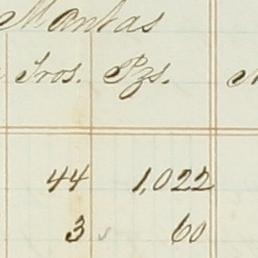 Mantas
Tros. Pzs.
44 1,022
3 60